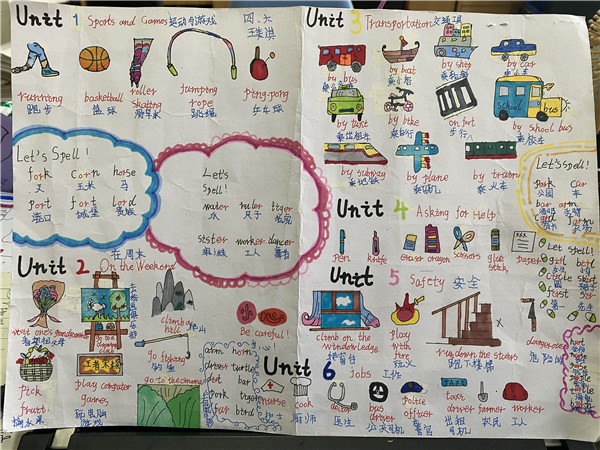 Unit 1 Sports and Games 运动与游戏
四.六
running
跑步
basketball
篮球
roller
skating
滑旱冰
jumping
rope
跳绳
ping-pong
乒乓球
Let's Spell!
fork corn horse
叉 玉米 马
port fort lord
港口 城堡 贵族
Let's
Spell!
water ruler tiger
水 尺子 老虎
sister worker dancer
工人 舞者
在周末
Unit 2 On the Weekend
visit one's grandparents
看望祖父母
climb a
hill
爬山
go fishing
钓鱼
Be careful!
pick
fruit
摘水果
play computer
games
玩电脑
游戏
go to the cinema
arm horn
turtle
bar
port tiger
fur bird
Unit 3 Transportation 交通工具
by bus
乘公交
by boat
乘小船
by ship
乘轮船
by car
乘小车
by taxi
乘出租车
by bike
乘自行
on foot
步行
school bus
by school bus
乘校车
by subway
乘地铁
by plane
乘飞机
by train
乘火车
Let's Spell!
park car
公园
barn arm
card farm
Unit 4 Asking for Help
pen
knife
eraser
crayon
scissors
glue
stick
paper
Let spell!
girl bird
circle skirt
first sir
Unit 5 Safety 安全
climb on the
windowledge
爬窗台
play
with
fire
玩火
run down the stairs
跑下楼梯
x
dangerous
危险的
Unit 6 Jobs
工作
nurse
cook
厨师
doctor
医生
bus
driver
公交司机
police
officer
警官
TAXI
taxi
driver
出租
司机
farmer
农民
worker
工人